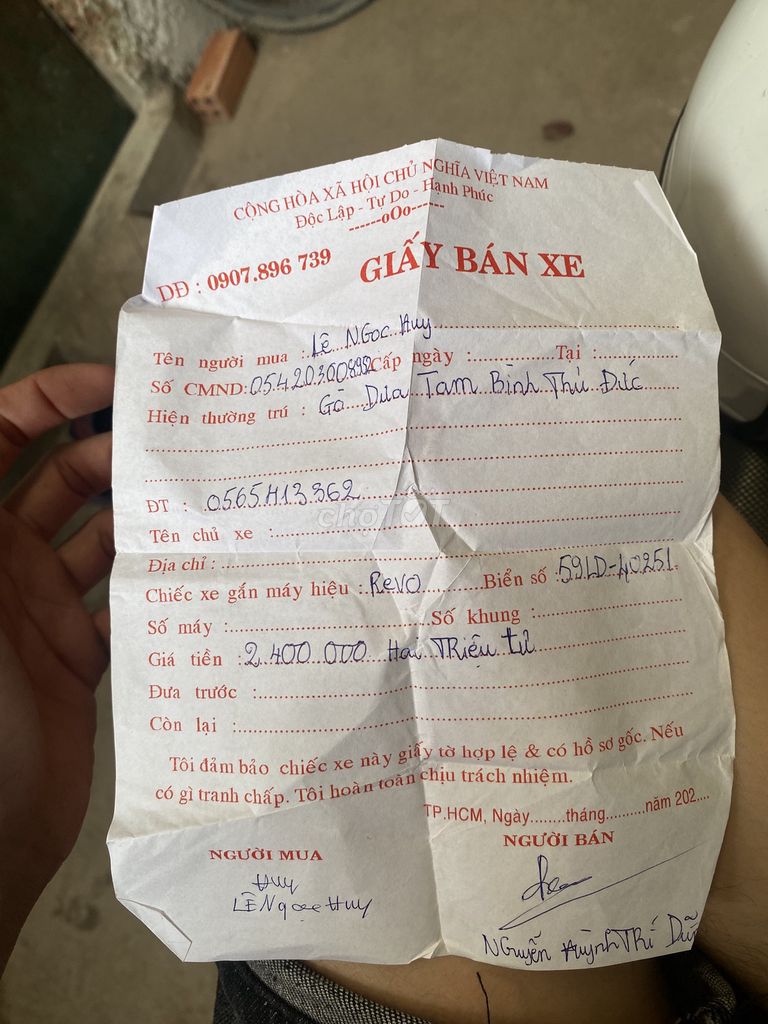 CỘNG HÒA XÃ HỘI CHỦ NGHĨA VIỆT NAM
Độc Lập - Tự Do - Hạnh Phúc
------oOo------
DĐ : 0907.896 739 GIẤY BÁN XE
Tên người mua : Lê Ngọc Huy
Số CMND: 054203008982 Cấp ngày :............Tại :............
Hiện thường trú : Gò Dưa Tam Bình Thủ Đức
ĐT : 0565413362
chợTỐT
Tên chủ xe :
Địa chỉ :
Chiếc xe gắn máy hiệu : Revo Biển số : 59LD-40251
Số máy : Số khung :
Giá tiền : 2.400 000 Hai Triệu tư
Đưa trước :
Còn lại :
Tôi đảm bảo chiếc xe này giấy tờ hợp lệ & có hồ sơ gốc. Nếu
có gì tranh chấp. Tôi hoàn toàn chịu trách nhiệm.
TP.HCM, Ngày........tháng.........năm 202....
NGƯỜI MUA NGƯỜI BÁN
Huy
LÊ Ngọc Huy
Nguyễn Huỳnh Trí